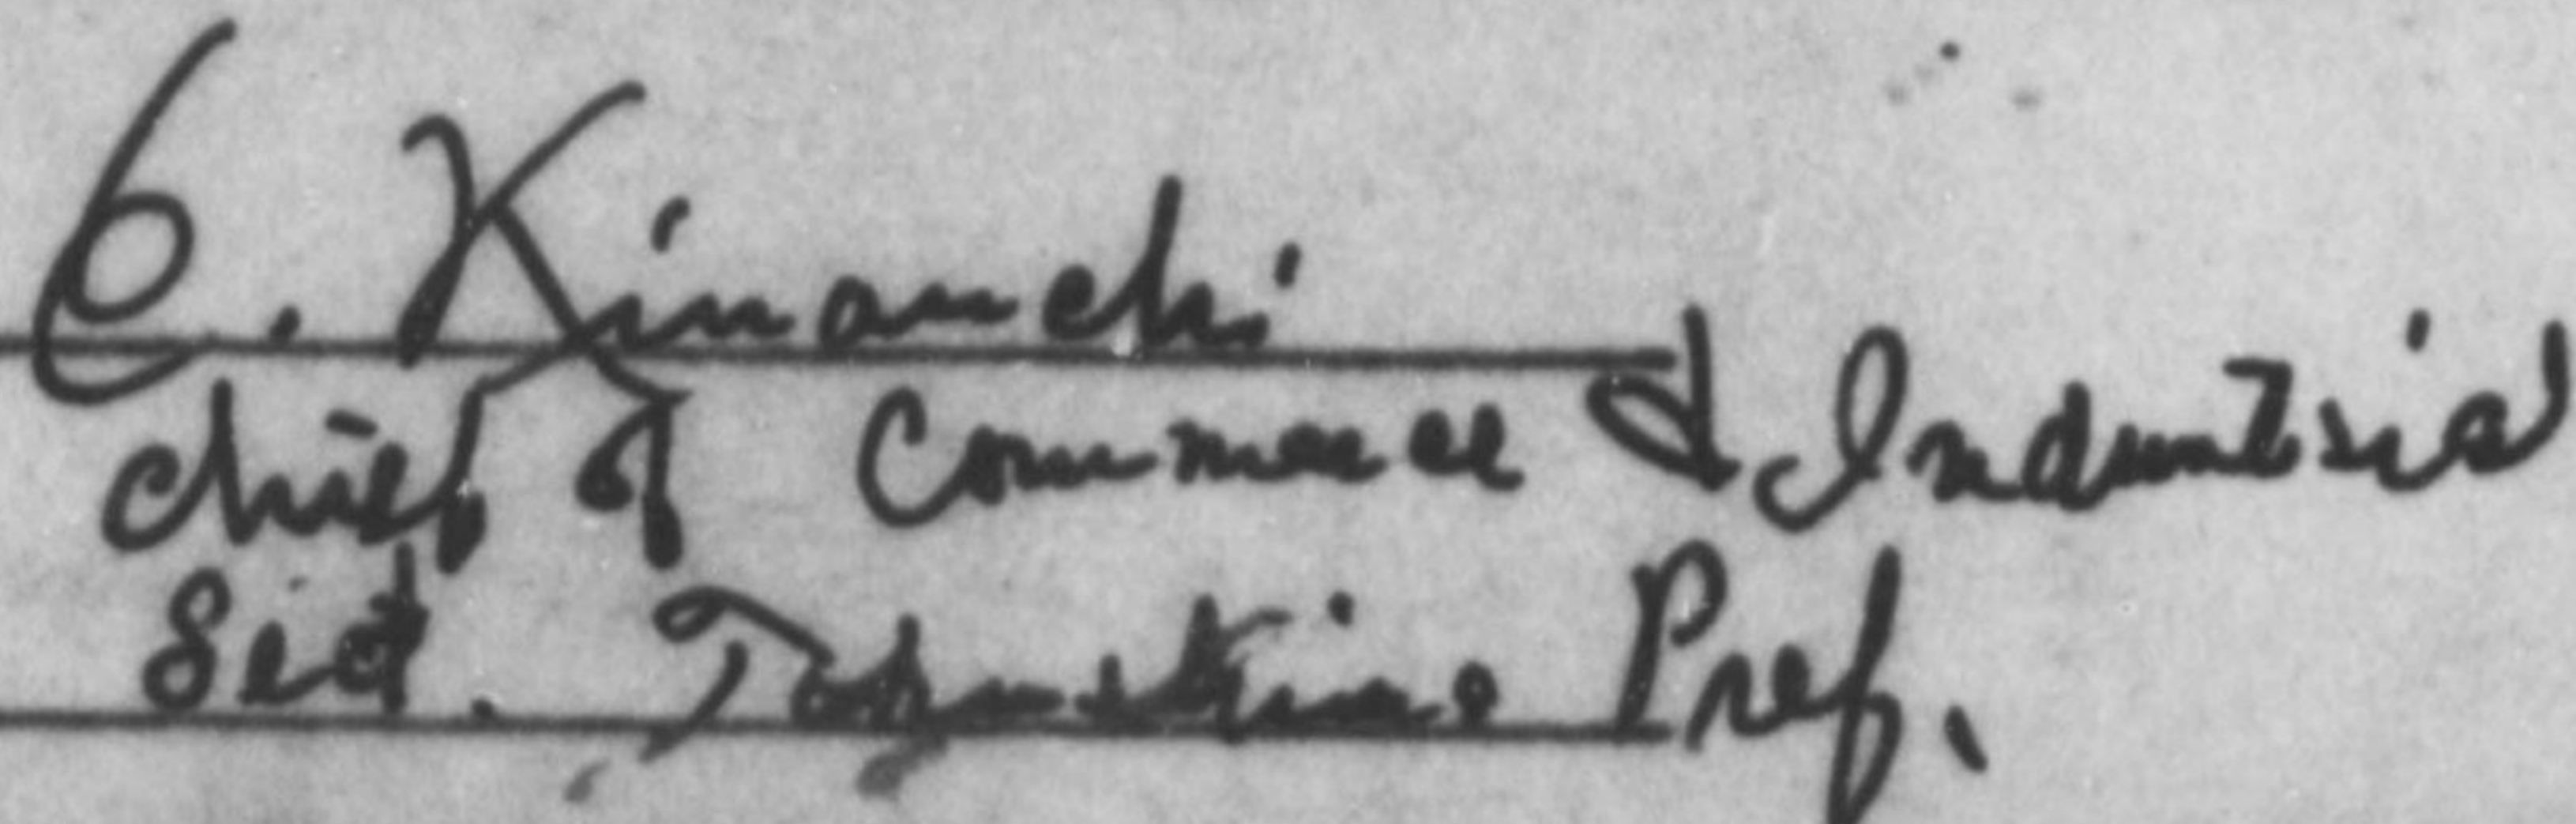 C. Kinouchi
Chief of Commerce & Industrial
Sect. Tokushima Pref.